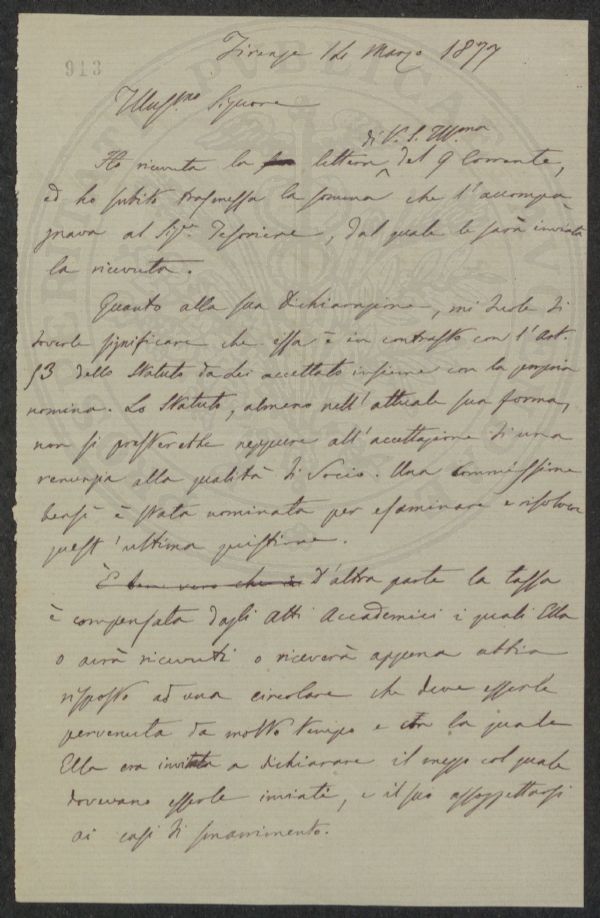 913
Firenze 1 di Marzo 1877
Illus.mo Signore
di V. S. Ill.ma
Ho ricevuta la sua lettera del 9 Corrente,
ed ho subito trasmessa la somma che l'accompa
gnava al Sig.r Tesoriere, dal quale le sarà inviata
la ricevuta.
Quanto alla sua dichiarazione, mi duole di
doverle significare che essa è in contrasto con l'Art.
53 dello Statuto da Lei accettato insieme con la propria
nomina. Lo Statuto, almeno nell'attuale sua forma,
non si presterebbe neppure all'accettazione di una
renunzia alla qualità di Socio. Una Commissione
bensì è stata nominata per esaminare e risolver
quest'ultima quistione.
È bene vero che D'altra parte la tassa
è compensata dagli Atti Accademici i quali Ella
o avrà ricevuti o riceverà appena abbia
risposto ad una circolare che deve esserle
pervenuta da molto tempo e con la quale
Ella era invitata a dichiarare il mezzo col quale
dovevano esserle inviati, e il suo assoggettarsi
ai casi di smarrimento.